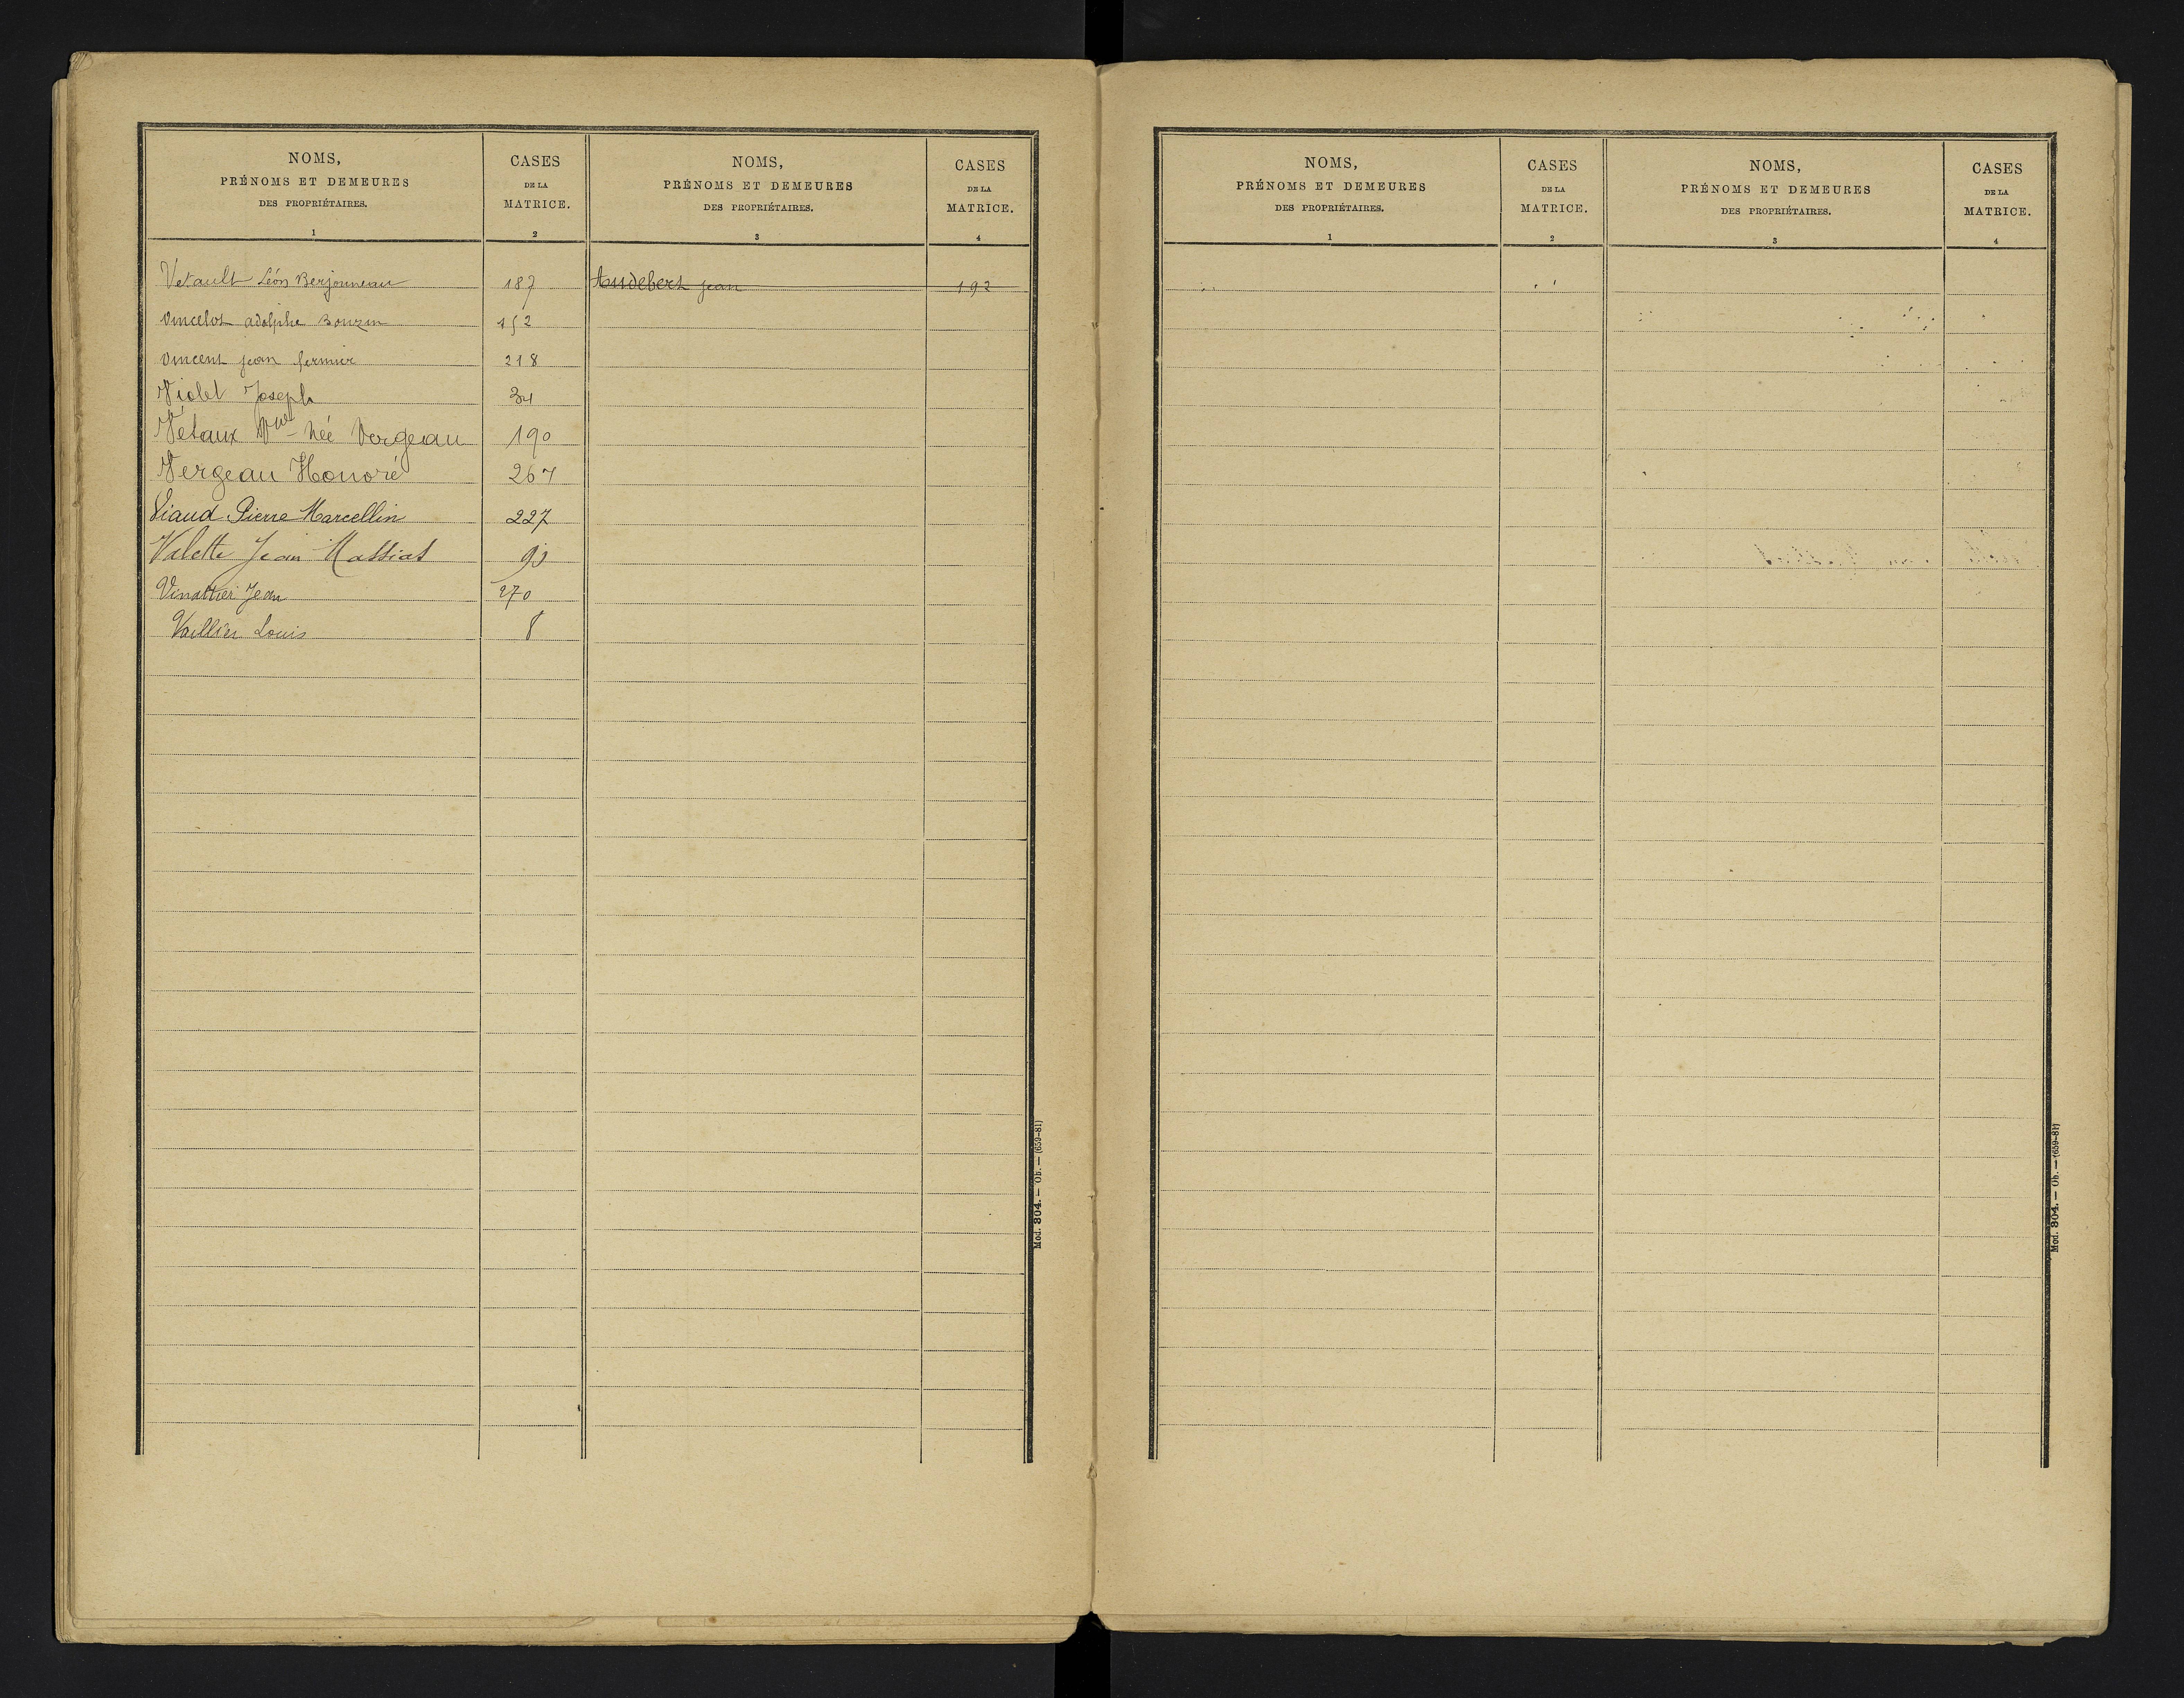 NOMS,
PRÉNOMS ET DEMEURES
DES PROPRIÉTAIRES.
1
CASES
DE LA
MATRICE.
2
NOMS,
PRÉNOMS ET DEMEURES
DES PROPRIÉTAIRES.
3
CASES
DE LA
MATRICE.
4
Vetault Léon Berjonneau 187
Vincelot adolphe Bouzin 152
Vincent jean fermier 218
Violet Joseph 34
Vétaux Vve née Vergeau 190
Vergeau Honoré 267
Viaud Pierre Marcellin 227
Valette Jean Massiat 90
Vinattier Jean 270
Vaillier Louis 8
Audebert jean 192
Mod. 304. — Ob. — (659-81)
NOMS,
PRÉNOMS ET DEMEURES
DES PROPRIÉTAIRES.
1
CASES
DE LA
MATRICE.
2
NOMS,
PRÉNOMS ET DEMEURES
DES PROPRIÉTAIRES.
3
CASES
DE LA
MATRICE.
4
Mod. 304. — Ob. — (659-81)